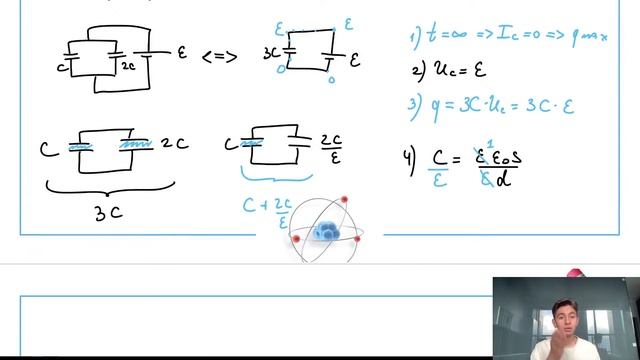 C 2C Ɛ <=> 3C Ɛ Ɛ Ɛ 0 0
1) t=∞ => I_c=0 => q max
2) U_c = Ɛ
3) q = 3C·U_c = 3C·Ɛ
C 2C
3C
C 2C/ε
C + 2C/ε
4) C/ε = ε ε₀ S / ε d 1